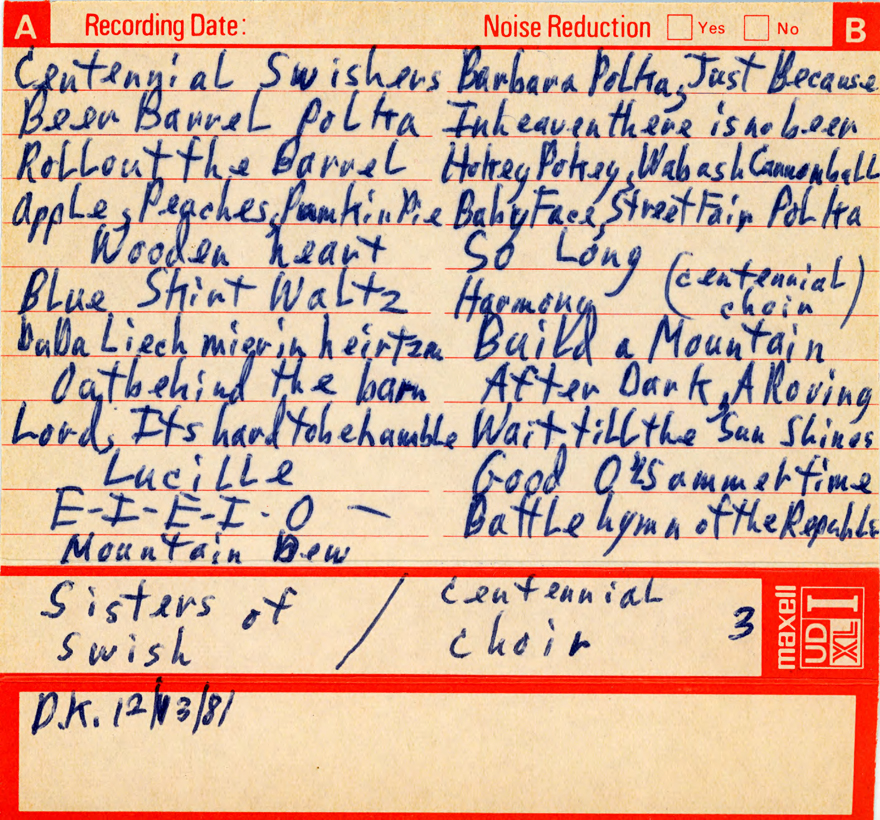 A Recording Date: Noise Reduction Yes No B
Centennial Swishers
Beer Barrel Polka
Roll out the Barrel
Apple, Peaches, Pumkin Pie
Wooden heart
Blue Skirt Waltz
DuDa Liech mier in heirtzen
Oat behind the barn
Lord, Its hard to be humble
Lucille
E-I-E-I-O —
Mountain Dew
Barbara Polka, Just Because
In heaven there is no beer
Hokey Pokey, Wabash Cannonball
Baby Face, Street Fair Polka
So Long
Harmony (centennial choir)
Build a Mountain
After Dark, A Roving
Wait till the Sun Shines
Good O'l Summertime
Battle hymn of the Republic
Sisters of Swish / Centennial Choir 3
maxell UD XL I
D.K. 12/13/81